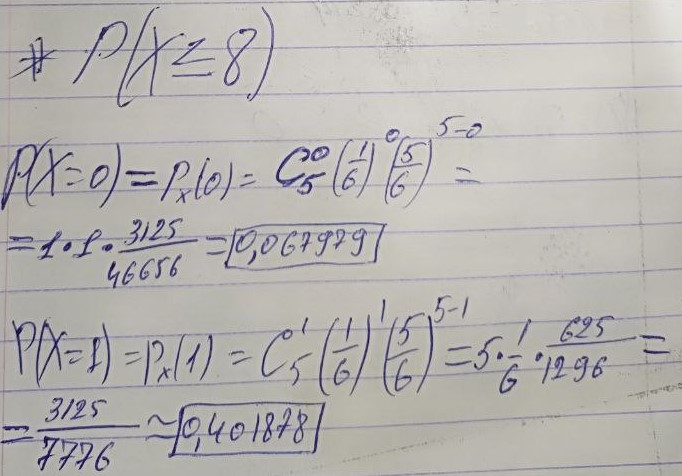 * P(X≤8)
P(X=0) = Pₓ(0) = C₅⁰ (1/6)⁰ (5/6)⁵⁻⁰ =
= 1 · 1 · 3125/46656 = 0,067979
P(X=1) = Pₓ(1) = C₅¹ (1/6)¹ (5/6)⁵⁻¹ = 5 · 1/6 · 625/1296 =
= 3125/7776 ≈ 0,401878